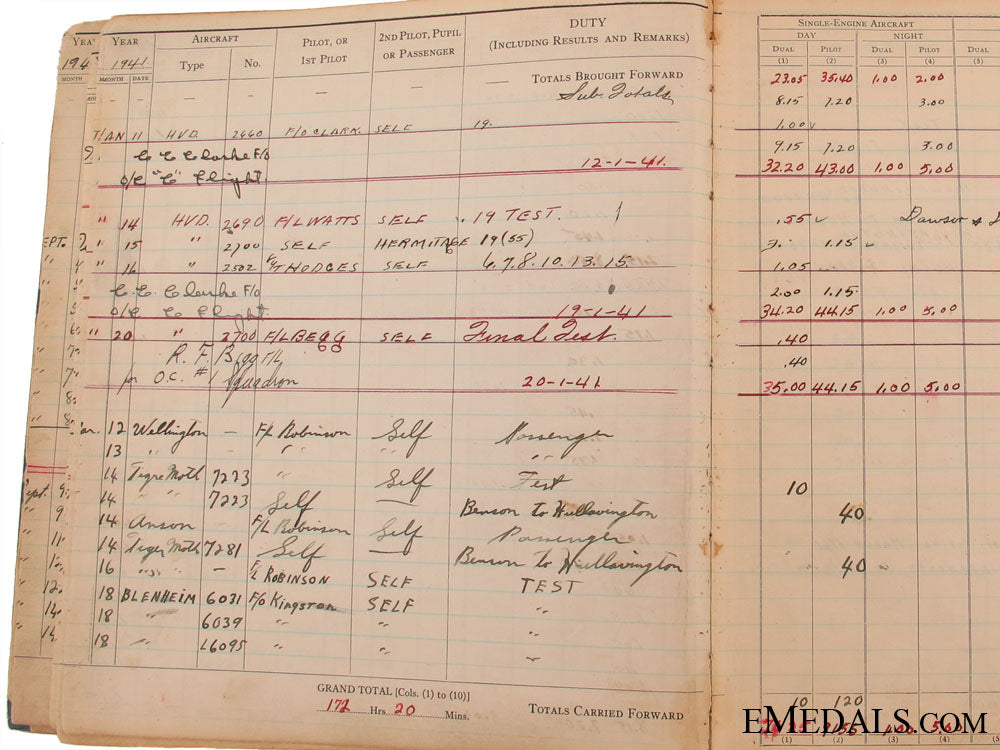 YEAR AIRCRAFT PILOT, OR 1ST PILOT 2ND PILOT, PUPIL OR PASSENGER DUTY (INCLUDING RESULTS AND REMARKS) SINGLE-ENGINE AIRCRAFT
1941 Type No. DAY NIGHT
MONTH DATE DUAL PILOT DUAL PILOT DUAL
(1) (2) (3) (4) (5)
— — — — — — TOTALS BROUGHT FORWARD 23.05 35.40 1.00 2.00
Sub. Totals 8.15 7.20 3.00
JAN 11 HVD. 2660 F/O CLARK. SELF 19. 1.00
C C Clarke F/O 9.15 7.20 3.00
O/C "C" Flight 12-1-41. 32.20 43.00 1.00 5.00
" 14 HVD. 2690 F/L WATTS SELF 19 TEST. .55
" 15 " 2700 SELF HERMITAGE 19 (55) 1.15
" 16 " 2502 F/LT HODGES SELF 6.7.8.10.13.15. 1.05
C. C. Clarke F/O 2.00 1.15
O/C C Flight. 19-1-41 34.20 44.15 1.00 5.00
" 20 " 2700 F/L BEGG SELF Final Test. .40
R. F. Begg F/L .40
for O.C. #1 Squadron 20-1-41 35.00 44.15 1.00 5.00
Mar. 12 Wellington — F/L Robinson Self Passenger
13 " " " " "
14 Tigre Moth 7223 " Self Test 10
14 " " 7223 Self — Benson to Hullavington 40
14 Anson — F/L Robinson Self Passenger
14 Tiger Moth 7281 Self — Benson to Hullavington 40
16 " " — F/L ROBINSON SELF TEST
18 BLENHEIM 6031 F/O Kingston SELF "
18 " 6039 " " "
18 " L6095 " " "
GRAND TOTAL [Cols. (1) to (10)] 10 120
172 Hrs. 20 Mins. TOTALS CARRIED FORWARD 1.00 5.00
(1) (2) (3) (4) (5)
EMEDALS.COM